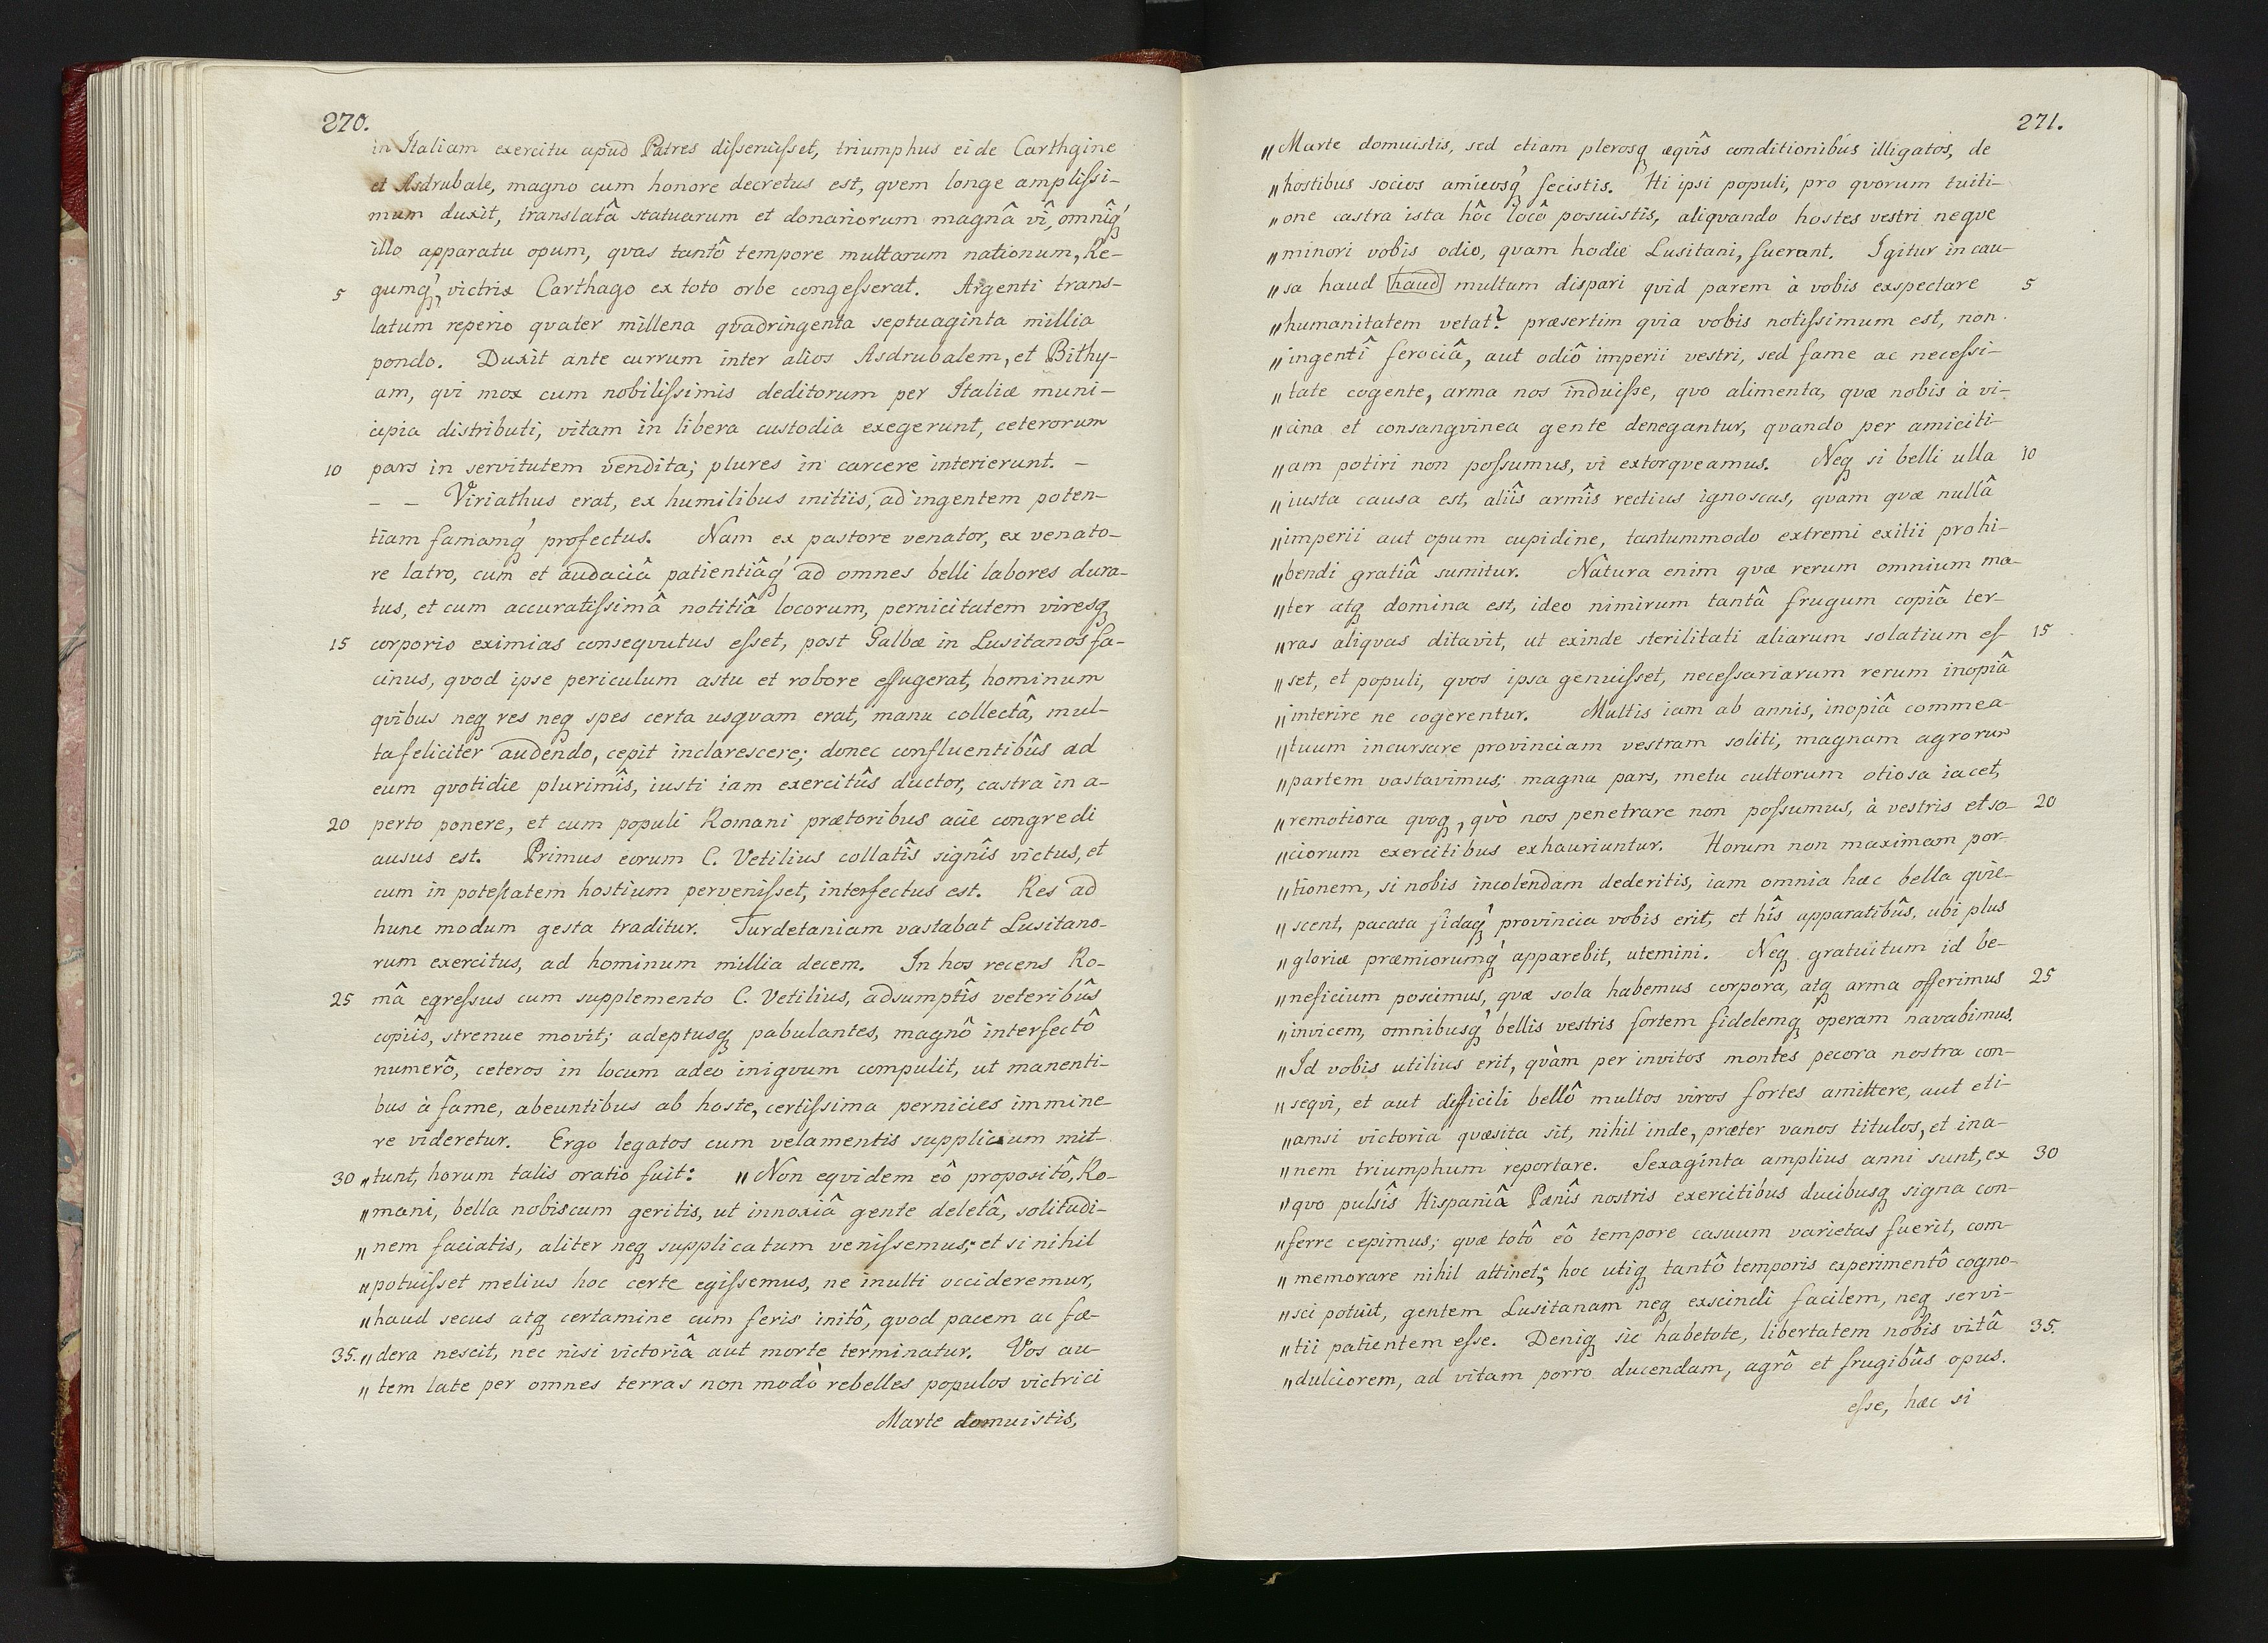 270.
in Italiam exercitu apud Patres disseruisset, triumphus ei de Carthgine
et Asdrubale, magno cum honore decretus est, qvem longe amplissi-
mum duxit, translatâ statuarum et donariorum magnâ vî, omnîq́
illo apparatu opum, qvas tantô tempore multarum nationum, Re-
5 gumq́, victrix Carthago ex toto orbe congesserat. Argenti trans-
latum reperio qvater millena qvadringenta septuaginta millia
pondo. Duxit ante currum inter alios Asdrubalem, et Bithy-
am, qvi mox cum nobilissimis deditorum per Italiæ muni-
cipia distributi, vitam in libera custodia exegerunt, ceterorum
10 pars in servitutem vendita; plures in carcere interierunt. –
– – Viriathus erat, ex humilibus initiis, ad ingentem poten-
tiam famamq́ profectus. Nam ex pastore venator, ex venato-
re latro, cum et audaciâ patientiâq́ ad omnes belli labores dura-
tus, et cum accuratissimâ notitiâ locorum, pernicitatem viresq
15 corporio eximias conseqvutus esset, post Galbæ in Lusitanos fa-
cinus, qvod ipse periculum astu et robore effugerat, hominum
qvibus neq res neq spes certa usqvam erat, manu collectâ, mul-
ta feliciter audendo, cepit inclarescere; donec confluentibûs ad
eum qvotidie plurimîs, iusti iam exercitûs ductor, castra in a-
20 perto ponere, et cum populi Romani prætoribus acie congredi
ausus est. Primus eorum C. Vetilius collatîs signîs victus, et
cum in potestatem hostium pervenisset, interfectus est. Res ad
hunc modum gesta traditur. Turdetaniam vastabat Lusitano-
rum exercitus, ad hominum millia decem. In hos recens Ro-
25 mâ egressus cum supplemento C. Vetilius, adsumptîs veteribûs
copiîs, strenue movit; adeptusq pabulantes, magnô interfectô
numerô, ceteros in locum adeo iniqvum compulit, ut manenti-
bus à fame, abeuntibus ab hoste, certissima pernicies immine
re videretur. Ergo legatos cum velamentis supplicium mit-
30 „tunt, horum talis oratio fuit: „Non eqvidem eô propositô, Ro-
„mani, bella nobiscum geritis, ut innoxiâ gente deletâ, solitudi-
„nem faciatis, aliter neq supplicatum venissemus; et si nihil
„potuisset melius hoc certe egissemus, ne inulti occideremur,
„haud secus atq certamine cum feris initô, qvod pacem ac fœ-
35. „dera nescit, nec nisi victoriâ aut morte terminatur. Vos au-
„tem late per omnes terras non modò rebelles populos victrici
Marte domuistis,
271.
„Marte domuistis, sed etiam plerosq æqvîs conditionibus illigatos, de
„hostibus socios amicosq́ fecistis. Hi ipsi populi, pro qvorum tuiti-
„one castra ista hôc locô posuistis, aliqvando hostes vestri neqve
„minori vobis odio, qvam hodie Lusitani, fuerant. Igitur in cau-
„sa haud haud multum dispari qvid parem à vobis exspectare 5
„humanitatem vetat? præsertim qvia vobis notissimum est, non
„ingentî ferociâ, aut odiô imperii vestri, sed fame ac necessi-
„tate cogente, arma nos induisse, qvo alimenta, qvæ nobis à vi-
„cina et consangvinea gente denegantur, qvando per amiciti-
„am potiri non possumus, vi extorqveamus. Neq si belli ulla 10
„iusta causa est, aliîs armîs rectius ignoscas, qvam qvæ nullâ
„imperii aut opum cupidine, tantummodo extremi exitii prohi-
„bendi gratiâ sumitur. Natura enim qvæ rerum omnium ma-
„ter atq domina est, ideo nimirum tantâ frugum copiâ ter-
„ras aliqvas ditavit, ut exinde sterilitati aliarum solatium es- 15
„set, et populi, qvos ipsa genuisset, necessariarum rerum inopiâ
„interire ne cogerentur. Multis iam ab annis, inopiâ commea-
„tuum incursare provinciam vestram soliti, magnam agrorum
„partem vastavimus; magna pars, metu cultorum otiosa iacet,
„remotiora qvoq, qvò nos penetrare non possumus, à vestris et so- 20
„ciorum exercitibus exhauriuntur. Horum non maximam por-
„tionem, si nobis incolendam dederitis, iam omnia hæc bella qvie-
„scent, pacata fidaq́ provincia vobis erit, et hîs apparatibûs, ubi plus
„gloriæ præmiorumq́ apparebit, utemini. Neq gratuitum id be-
„neficium poscimus, qvæ sola habemus corpora, atq arma offerimus 25
„invicem, omnibusq́ bellis vestris fortem fidelemq operam navabimus.
„Id vobis utilius erit, qvàm per invitos montes pecora nostra con-
„seqvi, et aut difficili bellô multos viros fortes amittere, aut eti-
„amsi victoria qvæsita sit, nihil inde, præter vanos titulos, et ina-
„nem triumphum reportare. Sexaginta amplius anni sunt, ex 30
„qvo pulsîs Hispaniâ Pœnîs nostris exercitibus ducibusq signa con-
„ferre cepimus; qvæ totô eô tempore casuum varietas fuerit, com-
„memorare nihil attinet; hoc utiq tantô temporis experimentô cogno-
„sci potuit, gentem Lusitanam neq exscindi facilem, neq servi-
„tii patientem esse. Deniq sic habetote, libertatem nobis vitâ 35.
„dulciorem, ad vitam porro ducendam, agrô et frugibûs opus.
esse, hæc si